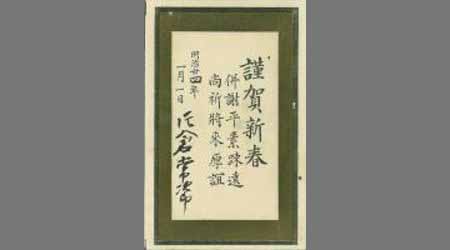 謹賀新春
併謝平素疎遠
尚祈將来厚誼
明治廿四年
一月一日